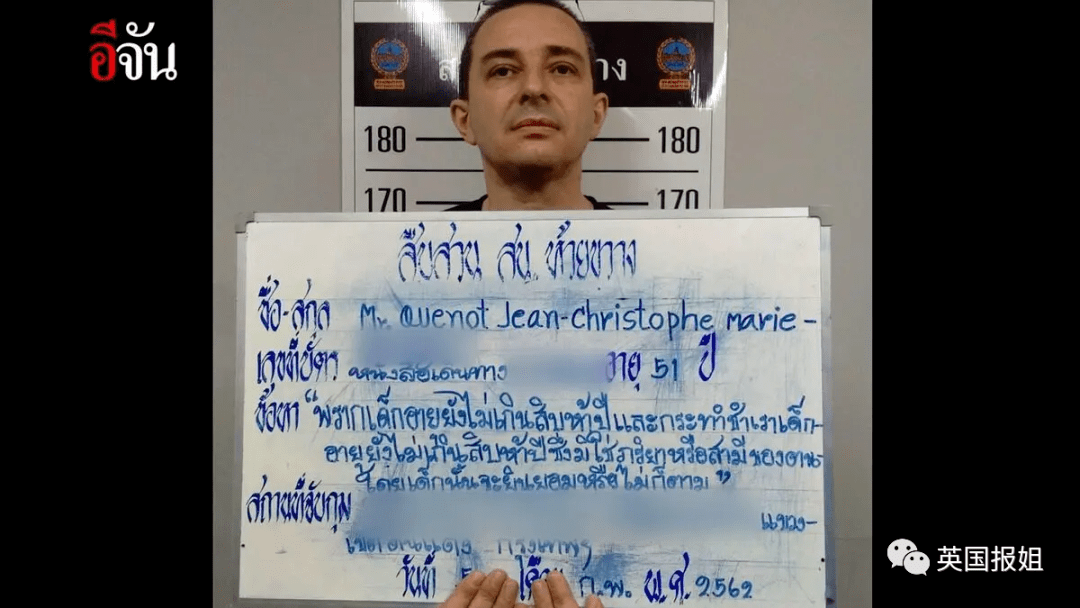 อีจัน
180 180
170 170
สืบสวน สน. ห้วยขวาง
ชื่อ-สกุล Mr. Quenot Jean-christophe marie -
เลขที่บัตร หนังสือเดินทาง อายุ 51 ปี
ข้อหา "พรากเด็กอายุยังไม่เกินสิบห้าปีและกระทำชำเราเด็ก-
อายุยังไม่เกินสิบห้าปีซึ่งมิใช่ภริยาหรือสามีของตน
โดยเด็กนั้นจะยินยอมหรือไม่ก็ตาม"
สถานที่จับกุม แขวง-
กรุงเทพฯ
วันที่ 5 ก.พ. พ.ศ. 2562
英国报姐